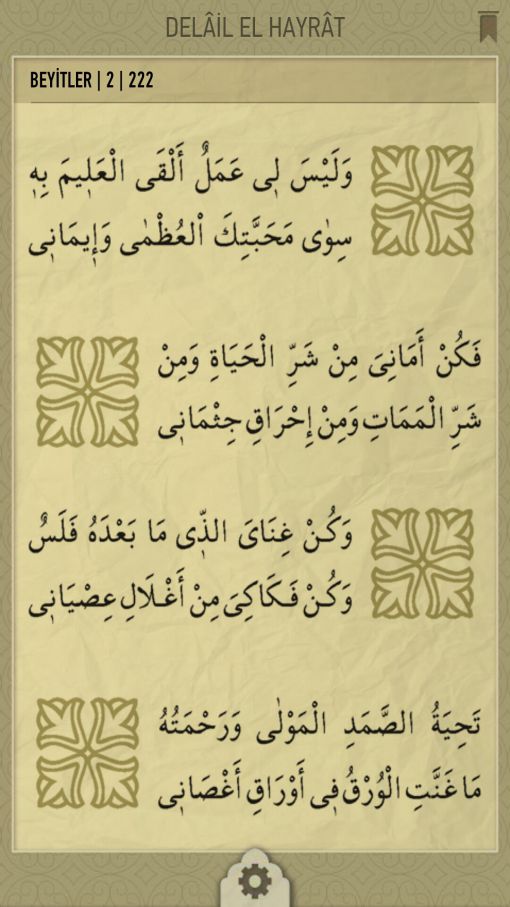 DELÂİL EL HAYRÂT
BEYİTLER | 2 | 222
وَلَيْسَ لِى عَمَلٌ أَلْقَى الْعَلِيمَ بِهِ
سِوٰى مَحَبَّتِكَ الْعُظْمٰى وَإِيمَانِى
فَكُنْ أَمَانِىَ مِنْ شَرِّ الْحَيَاةِ وَمِنْ
شَرِّ الْمَمَاتِ وَمِنْ إِحْرَاقِ جِثْمَانِى
وَكُنْ غِنَاىَ الذِّى مَا بَعْدَهُ فَلَسٌ
وَكُنْ فَكَاكِىَ مِنْ أَغْلَالِ عِصْيَانِى
تَحِيَةُ الصَّمَدِ الْمَوْلٰى وَرَحْمَتُهُ
مَا غَنَّتِ الْوُرْقُ فِى أَوْرَاقِ أَغْصَانِى